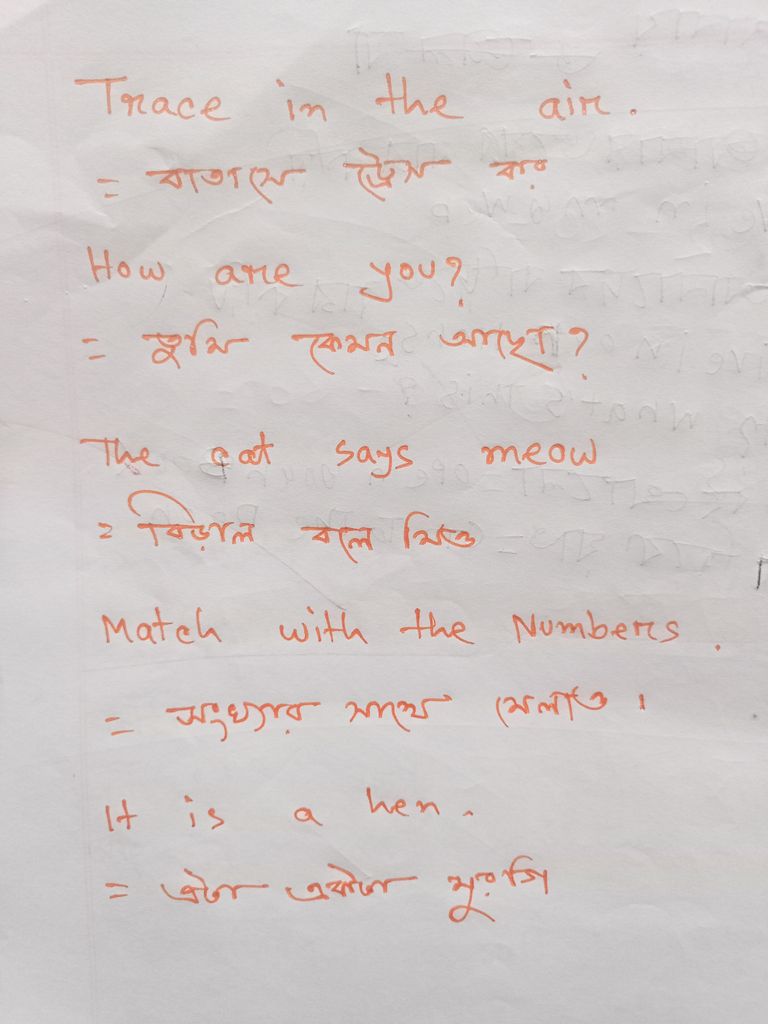 Trace in the air.
= বাতাসে ট্রেস কর
How are you?
= তুমি কেমন আছো?
The cat says meow
= বিড়াল বলে মিও
Match with the Numbers.
= সংখ্যার সাথে মেলাও।
It is a hen.
= এটা একটা মুরগি